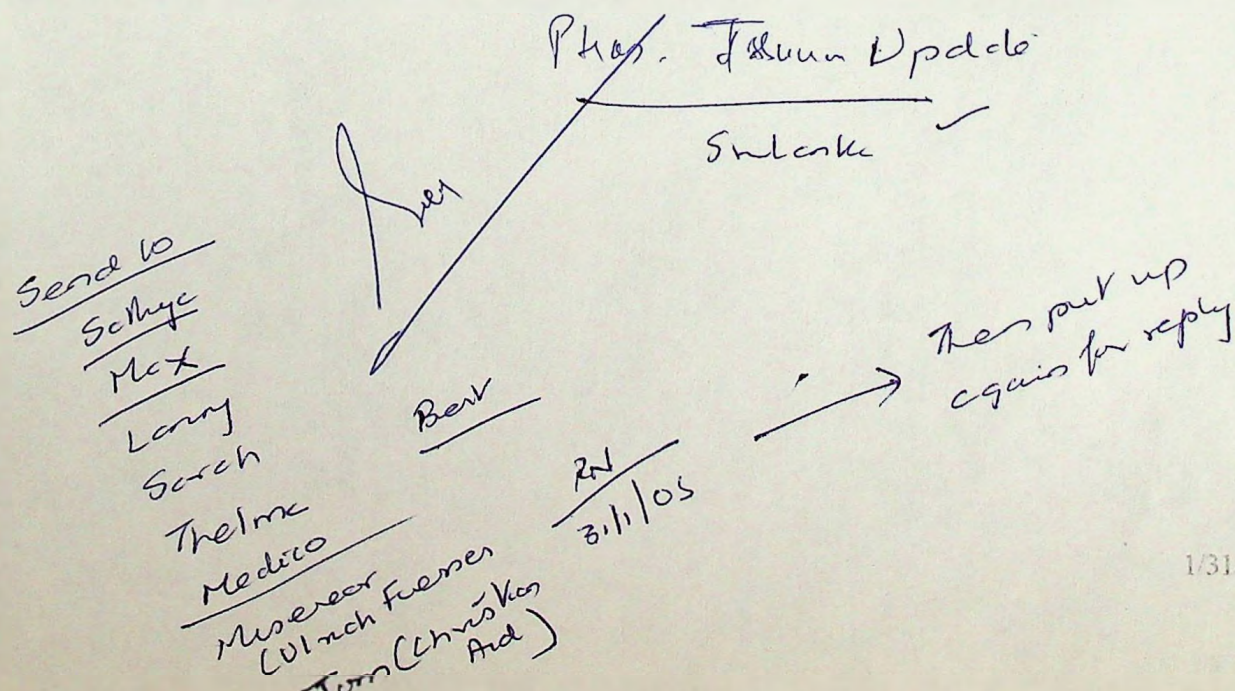 Update
Srilanka
Send to
Sathya
Max
Lanny
Sarah
Thelma
Medico
Misereor
(Ulrich Fuesser
Tom (Christian
Aid)
RN
31/1/05
Then put up
again for reply
1/31